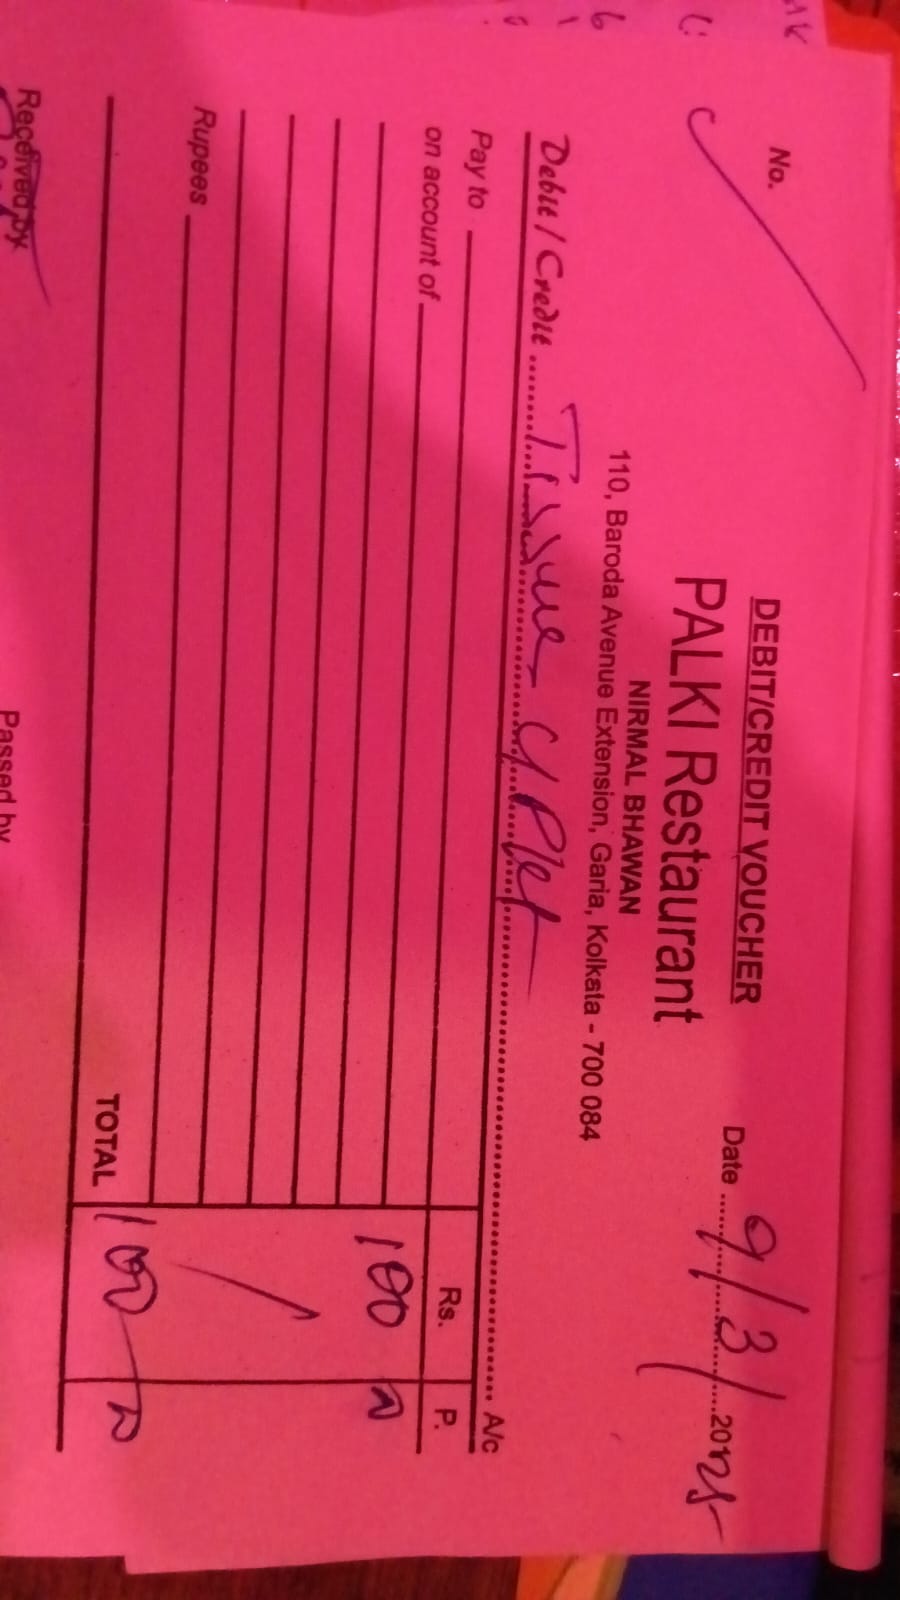 No.
DEBIT/CREDIT VOUCHER
PALKI Restaurant
Date 9/3/2025
NIRMAL BHAWAN
110, Baroda Avenue Extension, Garia, Kolkata - 700 084
Debit / Credit Tissue A/c
Pay to
on account of
Rs. P.
100
Rupees
TOTAL 100
Received by
Passed by